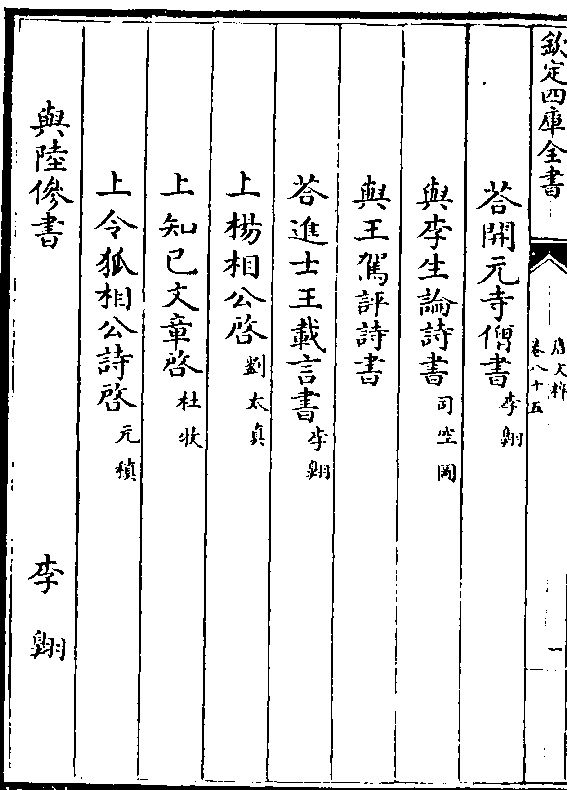 欽定四庫全書
唐文粹
卷八十五
一
荅開元寺僧書 李翺
與李生論詩書 司空圖
與王駕評詩書
荅進士王載言書 李翺
上楊相公啓 劉太真
上知已文章啓 杜牧
上令狐相公詩啓 元稹
與陸傪書 李翺